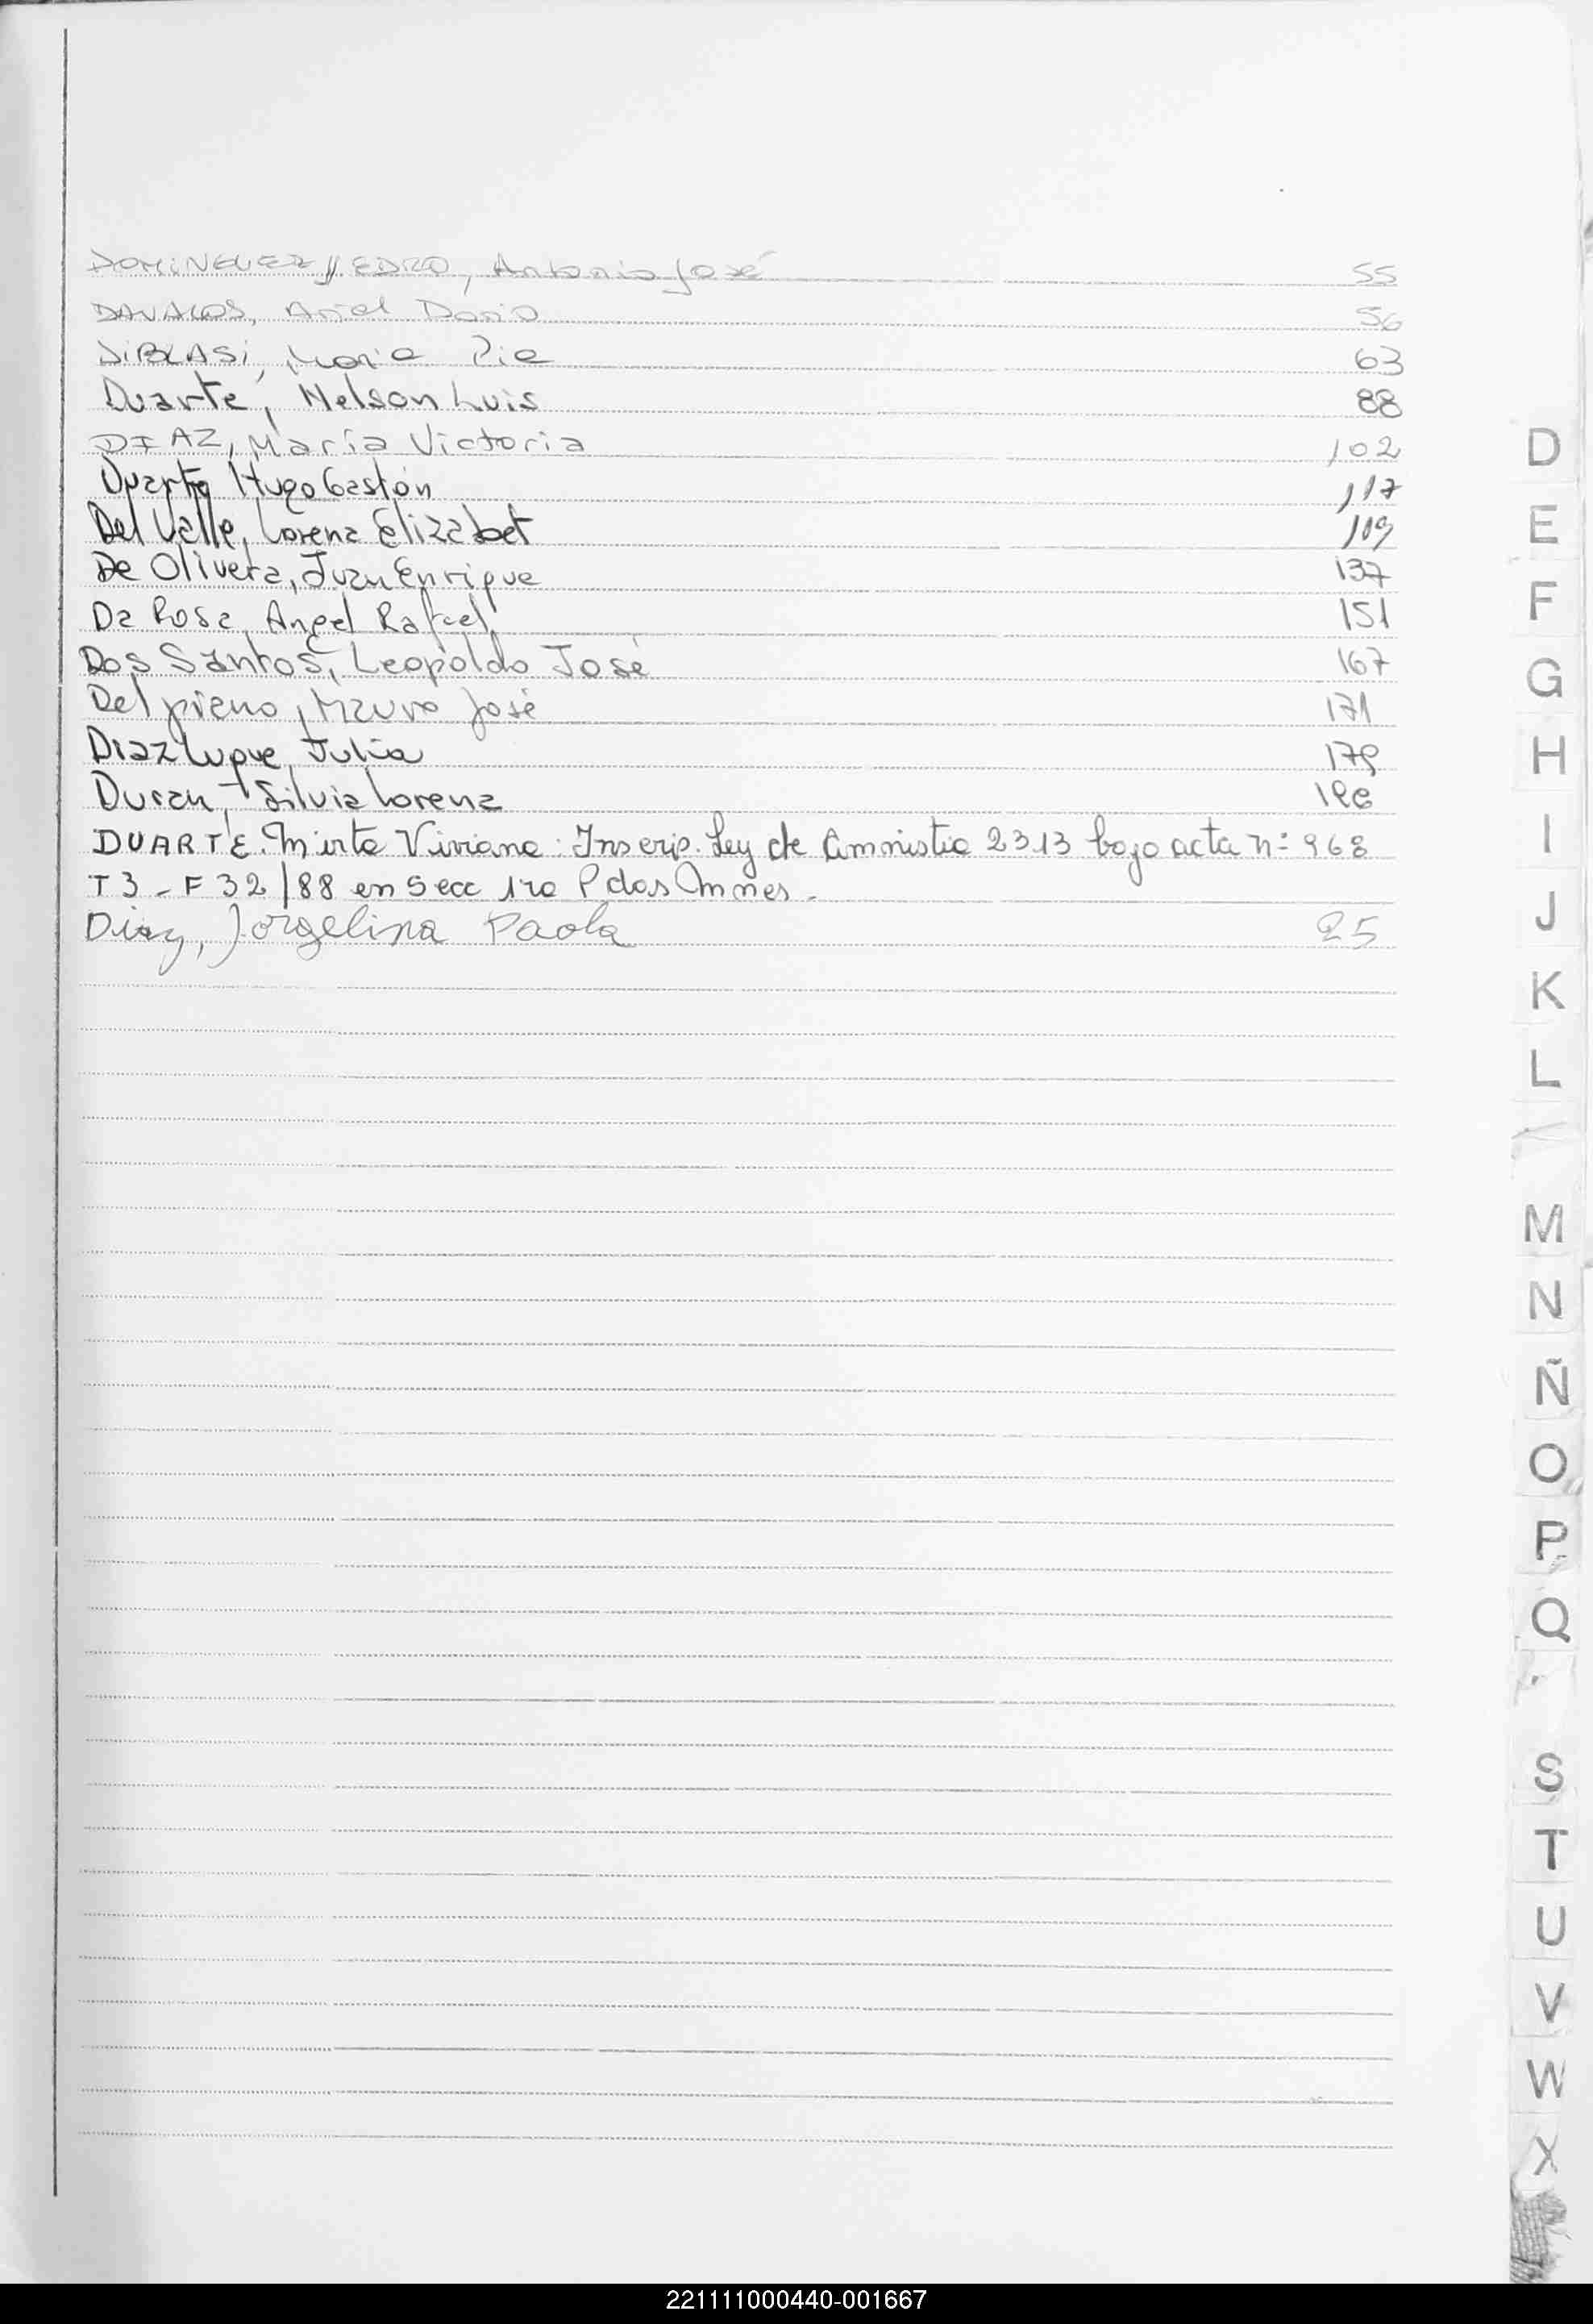 DOMINGUEZ YEDRO, Antonio José 55
DAVALOS, Ariel Dario 56
DiBLASi, Maria Pia 63
Duarte, Nelson Luis 88
DIAZ, María Victoria 102
Duarte Hugo Gastón 117
Del Valle, Lorena Elizabet 109
De Olivera, Juan Enrique 137
Da Rosa, Angel Rafael 151
Dos Santos, Leopoldo José 167
Del piano, Mauro José 171
Diaz Luque, Julia 179
Duran, Silvia Lorena
DUARTE. Mirta Viviana: Inscrip. Ley de Amnistia 23.13 bajo acta nº 968
T3 - F 32/88 en Secc 1ra Pdas Mnes.
Diaz, Jorgelina Paola 25
D
E
F
G
H
I
J
K
L
M
N
Ñ
O
P
Q
S
T
U
V
W
X
221111000440-001667